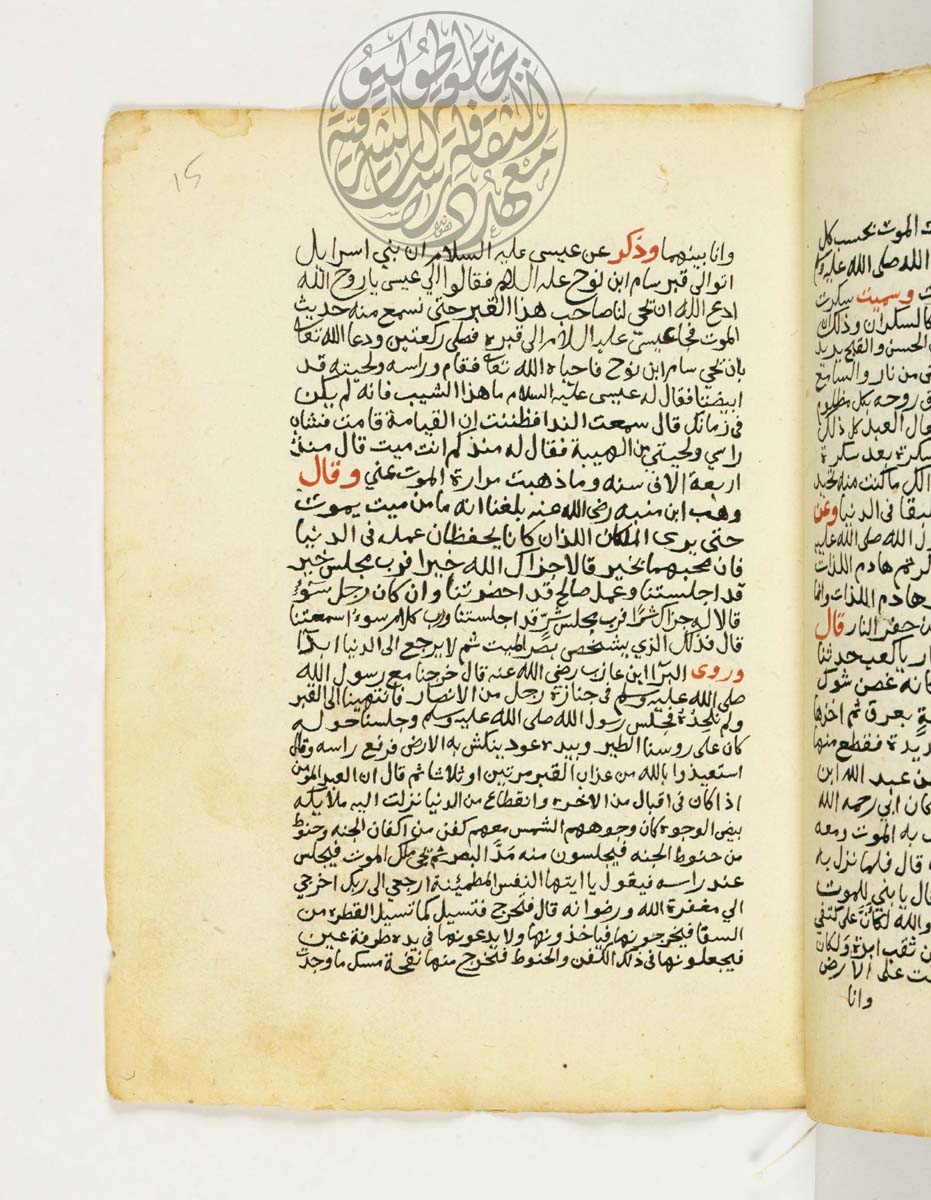 15
وانا بينهما وذكر عن عيسى عليه السلام ان بني اسرايل
اتوا الى قبر سام ابن نوح عليه السلام فقالوا الي عيسى يا روح الله
ادع الله ان تحي لنا صاحب هذا القبر حتى نسمع منه حديث
الموت فجا عيسى عليه السلام الى قبره فصلى ركعتين ودعا الله تعا
بان تحي سام ابن نوح فاحياه الله تعا فقام وراسه ولحيته قد
ابيضتا فقال له عيسى عليه السلام ما هذا الشيب فانه لم يكن
في زمانك قال سمعت الندا فظننت ان القيامة قامت فشاب
راسي ولحيتي من الهيبة فقال له منذ كم انت ميت قال منذ
اربعة الاف سنه وما ذهبت مرارة الموت عني وقال
وهب ابن منبه رضي الله عنه بلغنا انه ما من ميت يموت
حتى يرى الملكان اللذان كانا يحفظان عمله في الدنيا
فان صحبهما بخير قالا جزاك الله خيرا فرب مجلس خير
قد اجلستنا وعمل صالح قد احضرتنا وان كان رجل سوء
قالا له جزاك شرا فرب مجلس شر قد اجلستنا ورب كلام سوء اسمعتنا
قال فذلك الذي يشخص بصر الميت ثم لا يرجع الى الدنيا ابدا
وروى البرآ ابن عازب رضي الله عنه قال خرجنا مع رسول الله
صلى الله عليه وسلم في جنازة رجل من الانصار فانتهينا الى القبر
ولم نلحده فجلس رسول الله صلى الله عليه وسلم وجلسنا حوله
كان على روسنا الطير وبيده عود ينكش به الارض فرفع راسه وقال
استعيذوا بالله من عذاب القبر مرتين او ثلاثا ثم قال ان العبد المومن
اذا كان في اقبال من الاخره وانقطاع من الدنيا نزلت اليه ملايكه
بيض الوجوه كان وجوههم الشمس معهم كفن من اكفان الجنه وحنوط
من حنوط الجنه فيجلسون منه مد البصر ثم تجي ملك الموت فيجلس
عند راسه فيقول يا ايتها النفس المطمئنة ارجعي الى ربك اخرجي
الي مغفرة الله ورضوانه قال فتخرج فتسيل كما تسيل القطره من
السقا فيخرجونها فياخذونها ولا يدعونها في يده طرفة عين
فيجعلونها في ذلك الكفن والحنوط فتخرج منها نفحة مسك ما وجدت
الموت بحسب كل
الله صلى الله عليه وسلم
وسميت سكرت
كالسكران وذلك
الحسن والقبح يريد
من نار والسابع
روحه بكل مظلوم
العبد كل ذلك
سكرة بعد سكرة
ما كنت منه تحيد
في الدنيا وعن
الله صلى الله عليه
هاذم اللذات
هاذم اللذات وانما
حفر النار قال
يا كعب حدثنا
كانه غصن شوك
بعرق ثم اخذها
فقطع منها
عبد الله ابن
كان ابي رحمه الله
به الموت ومعه
قال فلما نزل به
يا بني للموت
والله لكان على كتفي
ثقب ابرة ولكان
على الارض
وانا